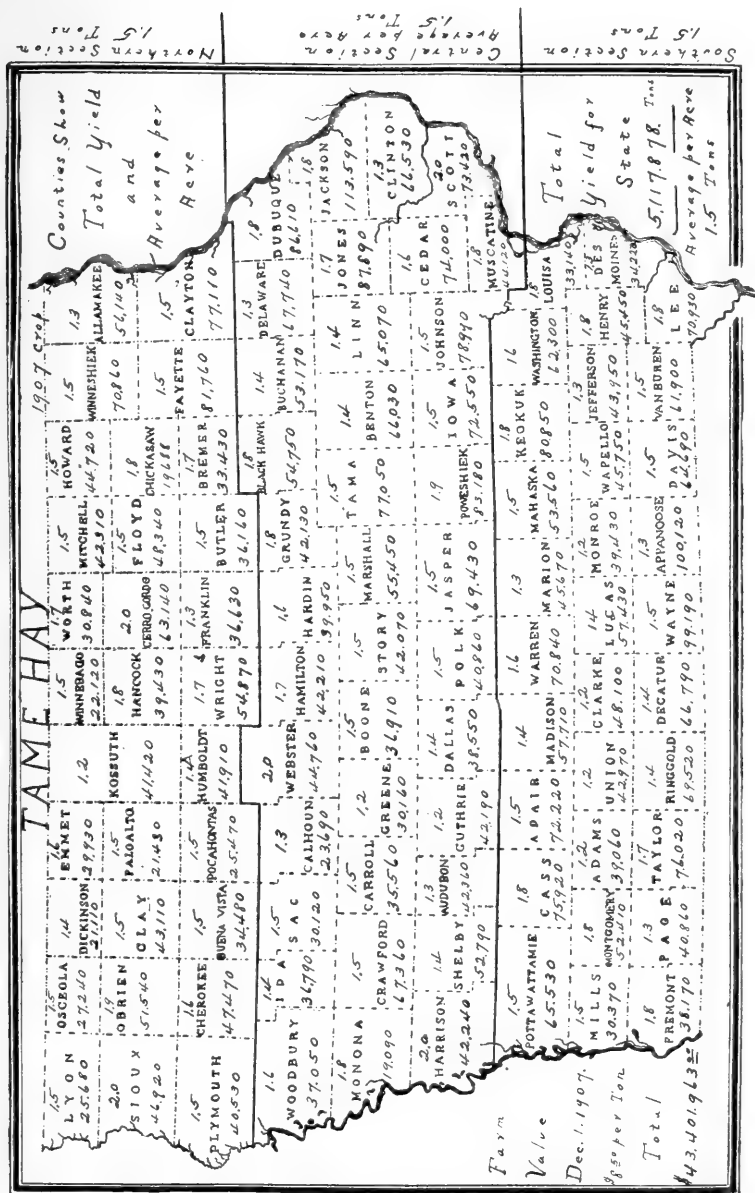 TAME HAY
1907 crop
Counties Show
Total Yield
and
Average per
Acre
Northern Section
1.5 Tons
Central Section
Average per Acre
1.5 Tons
Southern Section
1.5 Tons
1.5
LYON
25.680
1.5
OSCEOLA
27.240
1.4
DICKINSON
21.110
1.6
EMMET
29.930
1.2
KOSSUTH
41.420
1.5
WINNEBAGO
22.120
1.7
WORTH
30.840
1.5
MITCHELL
42.310
1.5
HOWARD
44.720
1.5
WINNESHIEK
70.860
1.3
ALLAMAKEE
56.140
2.0
SIOUX
46.920
1.9
OBRIEN
51.540
1.5
CLAY
43.110
1.5
PALOALTO
21.430
1.8
HANCOCK
39.430
2.0
CERRO GORDO
63.140
1.5
FLOYD
48.340
1.8
CHICKASAW
19.688
1.5
FAYETTE
81.760
1.5
CLAYTON
77.110
1.5
PLYMOUTH
40.530
1.6
CHEROKEE
47.470
1.5
BUENA VISTA
34.480
1.5
POCAHONTAS
25.470
1.4
HUMBOLDT
41.910
1.7
WRIGHT
54.870
1.3
FRANKLIN
36.630
1.5
BUTLER
36.160
1.7
BREMER
33.430
1.6
WOODBURY
37.050
1.4
IDA
36.790
1.5
SAC
30.120
1.3
CALHOUN
23.690
2.0
WEBSTER
44.760
1.7
HAMILTON
42.210
1.6
HARDIN
39.950
1.8
GRUNDY
42.130
1.8
BLACK HAWK
54.750
1.4
BUCHANAN
53.170
1.3
DELAWARE
67.740
1.8
DUBUQUE
86.610
1.8
MONONA
19.090
1.5
CRAWFORD
67.360
1.5
CARROLL
35.560
1.2
GREENE
30.160
1.5
BOONE
36.910
1.5
STORY
42.070
1.5
MARSHALL
55.450
1.5
TAMA
77.050
1.4
BENTON
66.030
1.4
LINN
65.070
1.7
JONES
87.890
1.8
JACKSON
113.590
1.3
CLINTON
66.530
2.0
HARRISON
42.240
1.4
SHELBY
52.790
1.3
AUDUBON
42.360
1.2
GUTHRIE
42.190
1.4
DALLAS
38.550
1.5
POLK
40.860
1.5
JASPER
69.430
1.9
POWESHIEK
83.180
1.5
IOWA
72.550
1.5
JOHNSON
78.970
1.6
CEDAR
74.000
2.0
SCOTT
73.420
1.8
MUSCATINE
44.120
1.5
POTTAWATTAMIE
65.530
1.8
CASS
75.920
1.5
ADAIR
72.220
1.4
MADISON
57.710
1.6
WARREN
70.840
1.3
MARION
45.670
1.5
MAHASKA
53.560
1.8
KEOKUK
80.850
1.6
WASHINGTON
62.300
1.8
LOUISA
33.140
1.5
MILLS
30.370
1.8
MONTGOMERY
52.410
1.2
ADAMS
39.060
1.2
UNION
42.970
1.2
CLARKE
48.100
1.4
LUCAS
57.430
1.2
MONROE
39.430
1.5
WAPELLO
45.750
1.3
JEFFERSON
43.950
1.8
HENRY
45.450
DES MOINES
34.220
1.8
FREMONT
38.170
1.3
PAGE
40.860
1.7
TAYLOR
76.020
1.4
RINGGOLD
69.520
1.4
DECATUR
66.790
1.5
WAYNE
99.190
1.3
APPANOOSE
100.120
1.5
DAVIS
64.690
1.5
VAN BUREN
61.900
1.8
LEE
70.930
Farm
Value
Dec. 1. 1907.
$8.50 per Ton
Total
$43.401.963
Total
Yield for
State
5.117.878. Tons
Average per Acre
1.5 Tons